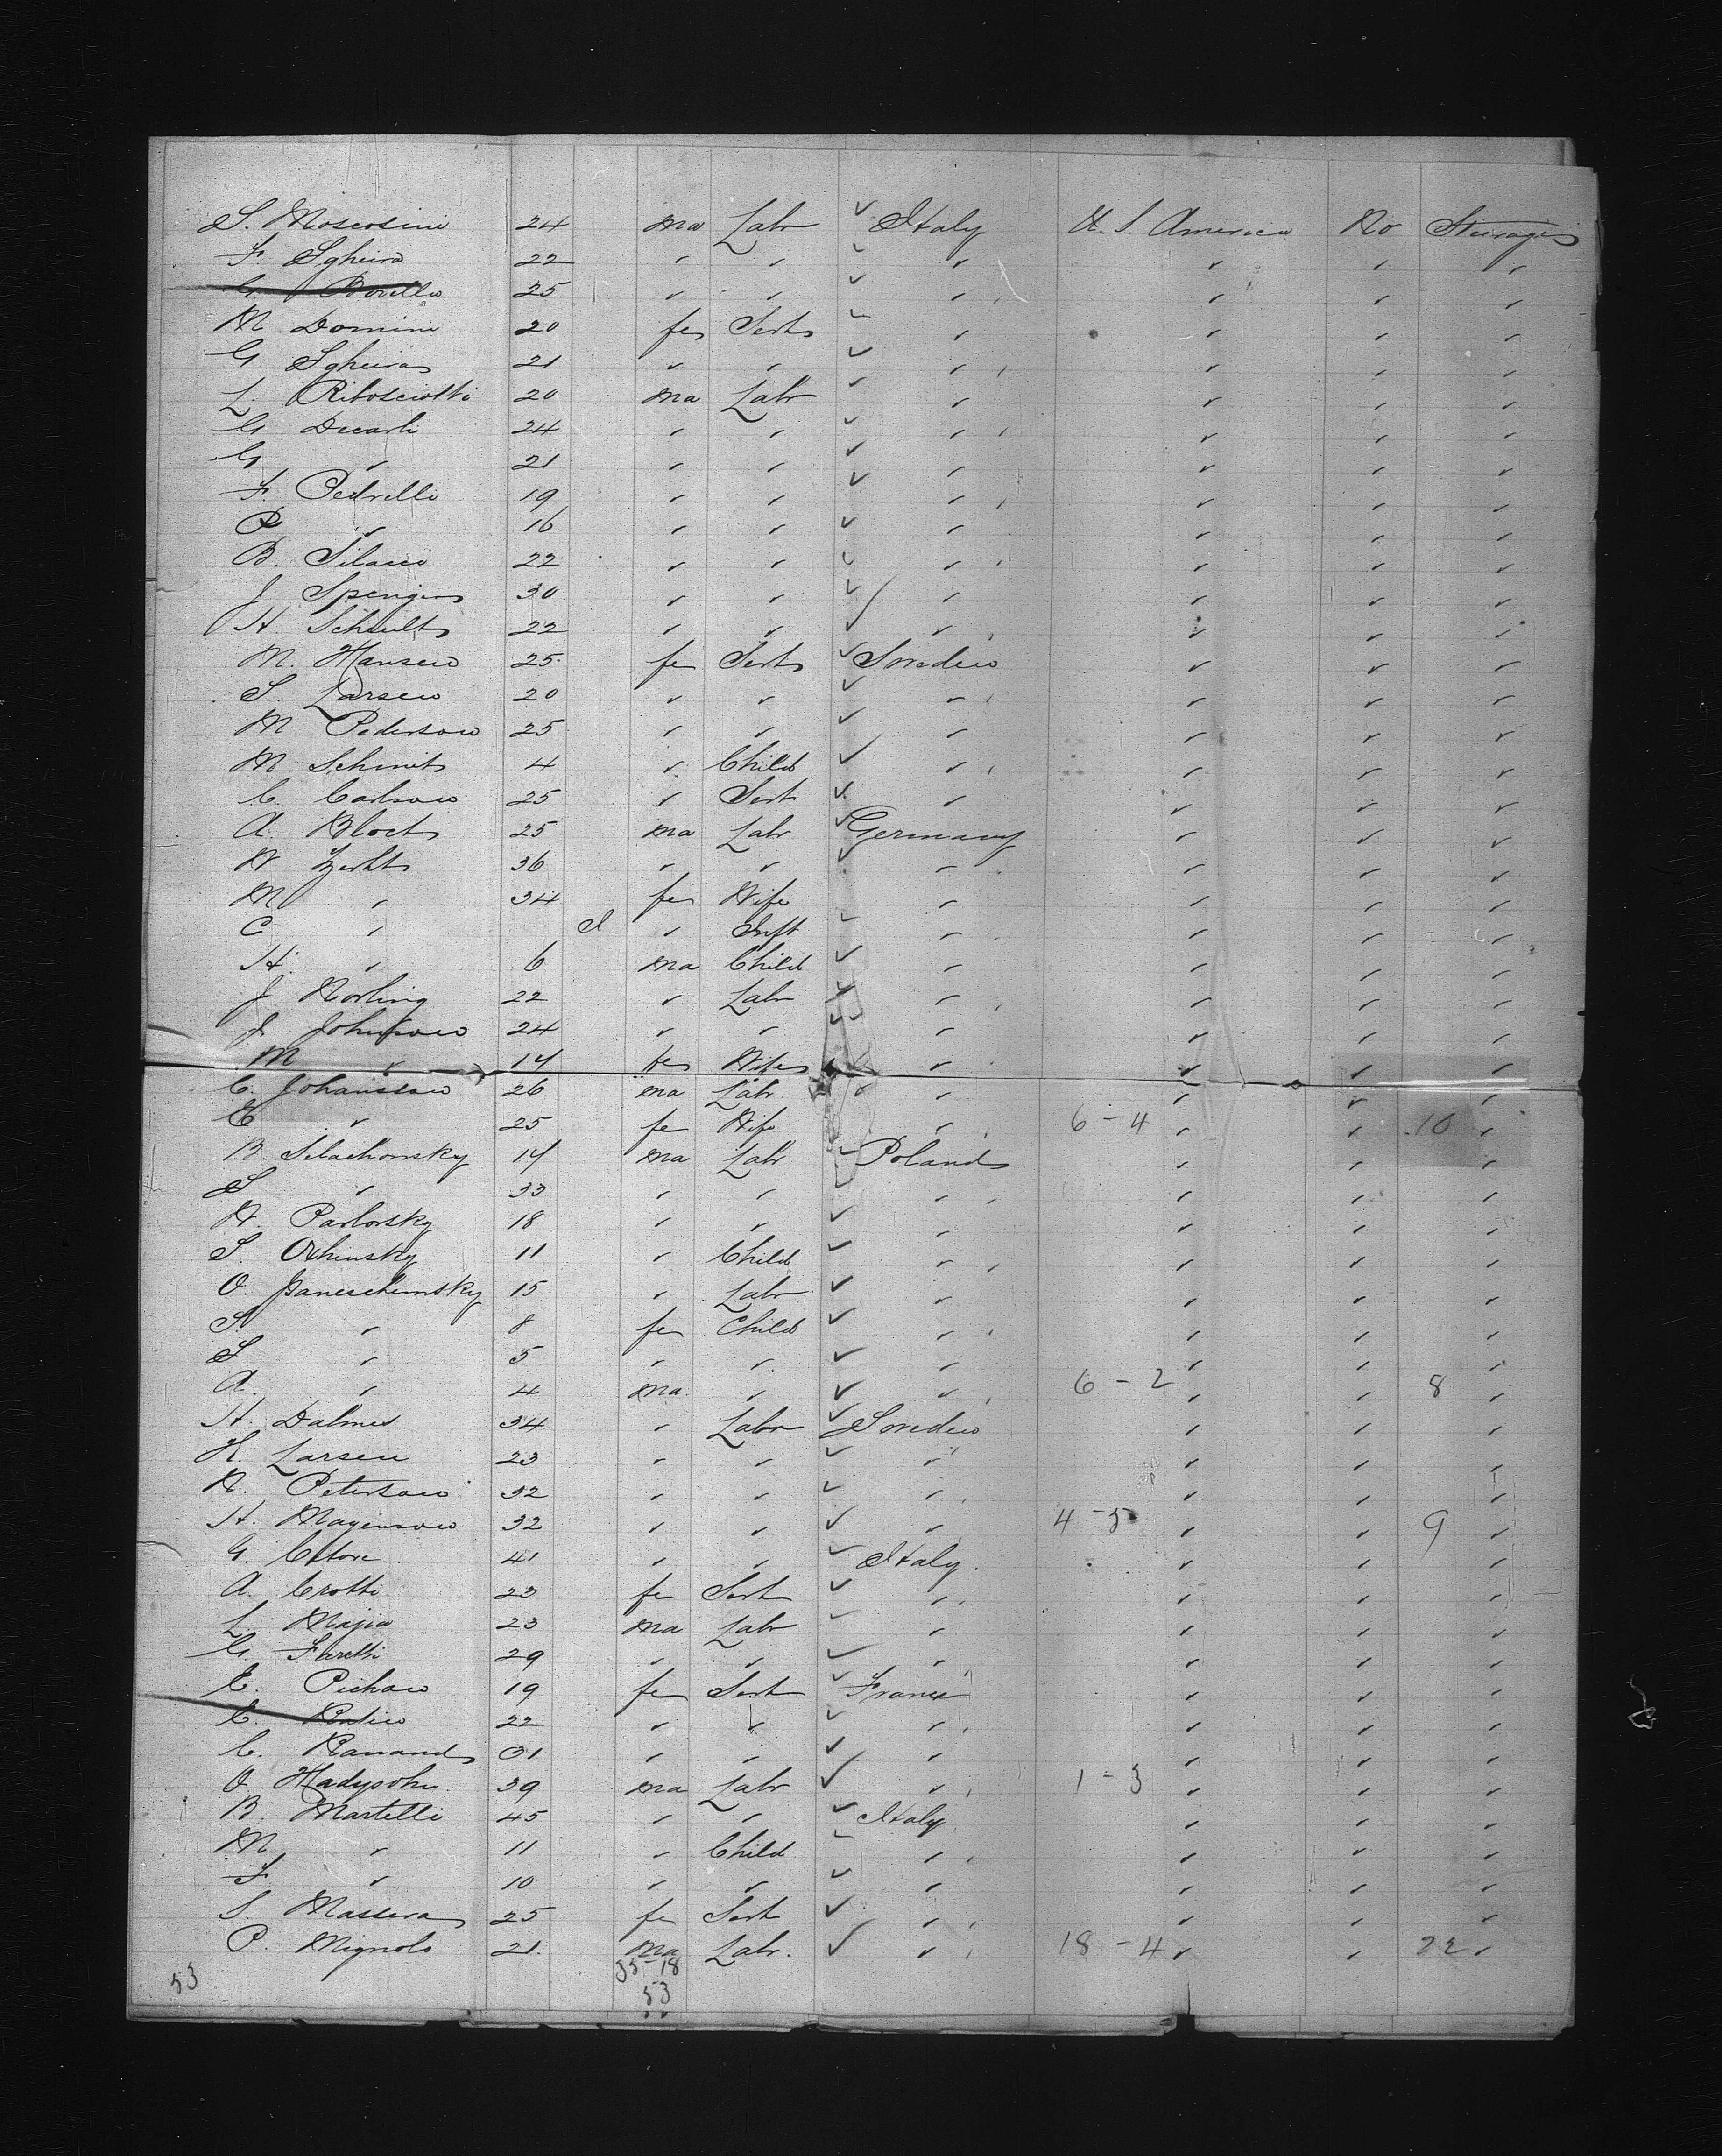 S. Moscosini 24 ma Labr ✓ Italy U. S. America No Steerage
F. Sgheira 22 " " ✓ " " " "
G. Borello 25 " " ✓ " " " "
M Domini 20 fe Sert ✓ " " " "
G Sgheira 21 " " ✓ " " " "
L. Ribosciotti 20 ma Labr ✓ " " " "
G Decarli 24 " " ✓ " " " "
G " 21 " " ✓ " " " "
F. Pedrelli 19 " " ✓ " " " "
P " 16 " " ✓ " " " "
B. Silacci 22 " " ✓ " " " "
J Spengin 30 " " ✓ " " " "
H. Schults 22 " " ✓ " " " "
M. Hansen 25 fe Sert ✓ Sweden " " "
S Larsen 20 " " ✓ " " " "
M Pederson 25 " " ✓ " " " "
M Schmit 4 " Child ✓ " " " "
C. Carlson 25 " Sert ✓ " " " "
A. Bloch 25 ma Labr ✓ Germany " " "
W Zerhts 36 " " ✓ " " " "
M " 34 fe Wife " " " "
C " I " Inft ✓ " " " "
H. " 6 ma Child ✓ " " " "
J Norling 22 " Labr ✓ " " " "
J. Johnson 24 " " ✓ " " " "
M " 14 fe Wife " " " "
C. Johansson 26 ma Labr ✓ " " " "
E " 25 fe Wife " 6 - 4 " " 10 "
B. Silachomsky 14 ma Labr ✓ Poland " " "
S " 33 " " ✓ " " " "
W. Parlorsky 18 " " ✓ " " " "
S. Ochinsky 11 " Child ✓ " " " "
O. Janeschemsky 15 " Labr ✓ " " " "
S. " 8 fe Child ✓ " " " "
S " 5 " " ✓ " " " "
A. " 4 ma. " ✓ " 6 - 2 " " 8 "
H. Dalmes 34 " Labr ✓ Sweden " " "
K. Larsen 23 " " ✓ " " " "
N. Peterson 32 " " ✓ " " " "
H. Magenson 32 " " ✓ " 4 - 5 " " 9 "
G. Ctore 41 " " ✓ Italy. " " "
A. Crotti 23 fe Sert ✓ " " " "
L. Majia 23 ma Labr ✓ " " " "
G. Faretti 29 " " ✓ " " " "
E. Pichaw 19 fe Sert ✓ France " " "
C. 22 " " ✓ " " " "
C. Ranand 31 " " ✓ " " " "
O Hadysohn 39 ma Labr ✓ " 1 - 3 " " "
B. Martelli 45 " " ✓ Italy. " " "
M. " 11 " Child ✓ " " " "
F " 10 " " ✓ " " " "
S. Massera 25 fe Sert ✓ " " " "
P. Mignolo 21. ma Labr. ✓ " 18 - 4 " " 22 "
53 35-18
53